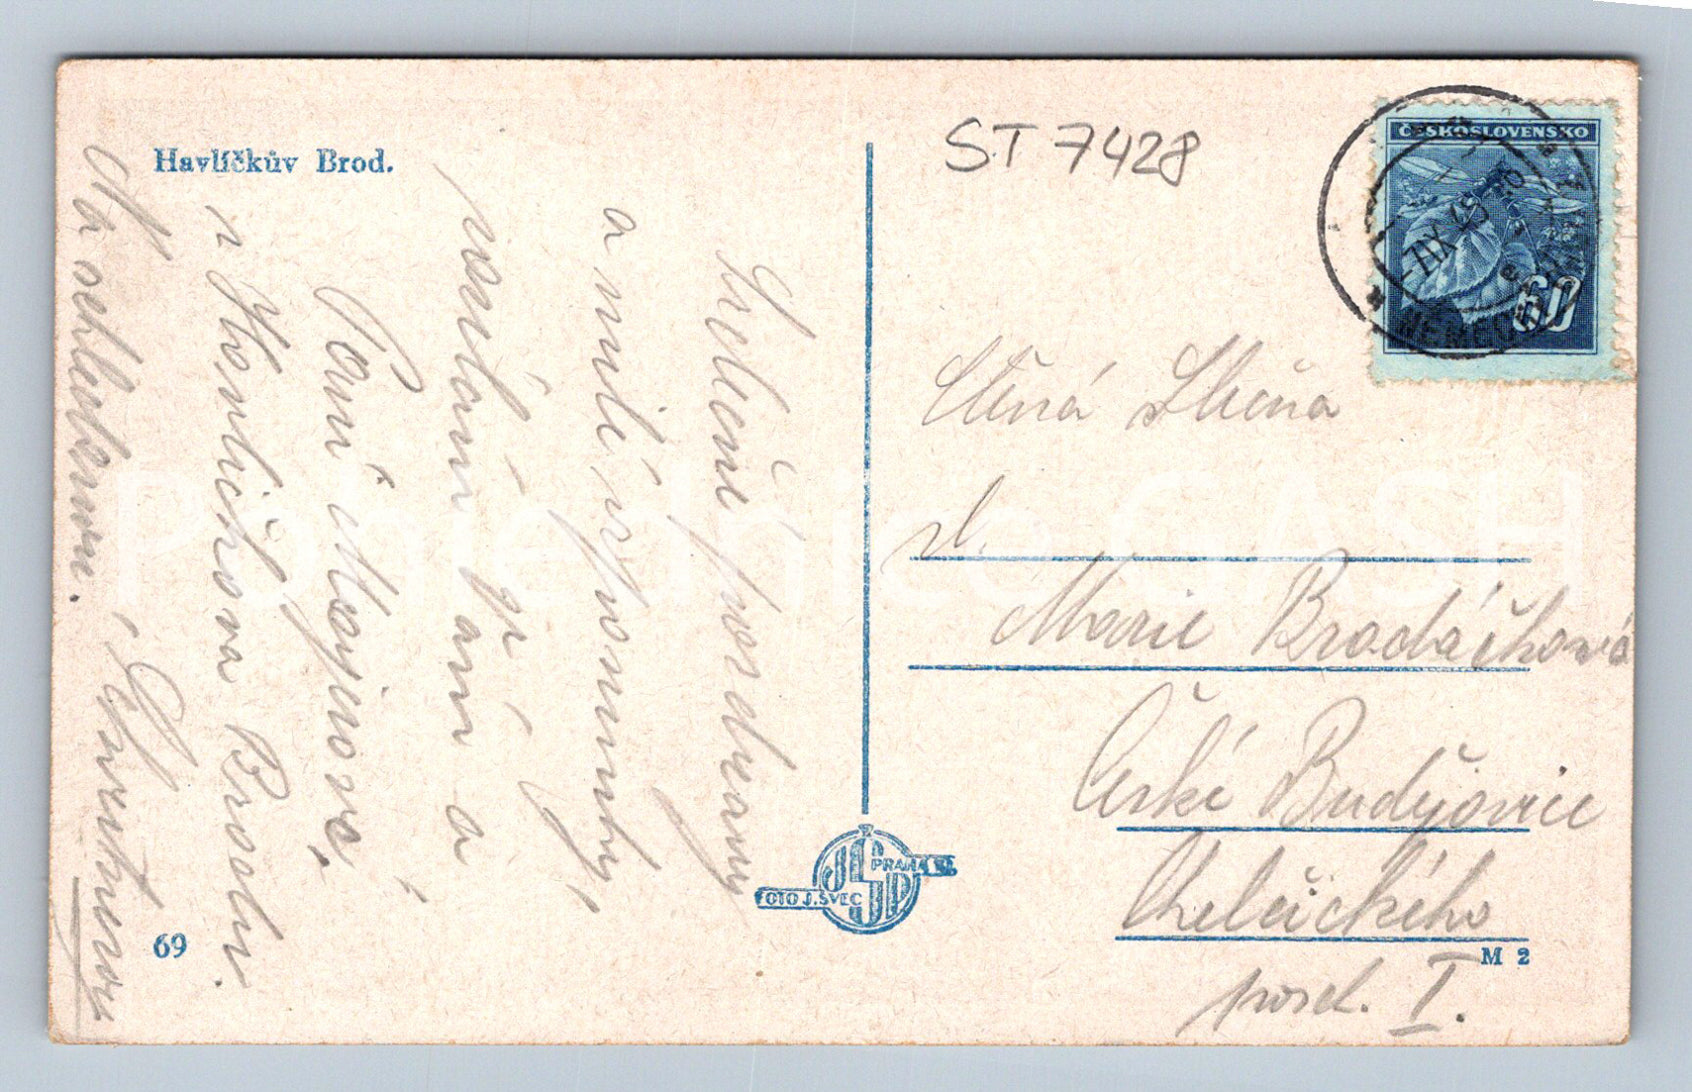 Havlíčkův Brod.
ST 7428
ČESKOSLOVENSKO
60
-7.IX.45
NĚMECKÝ
Srdečné pozdravy
a milé vzpomínky
zasílám
a
Paní
z Havlíčkova Brodu.
Na shledanou.
Ctěná Slečna
sl.
Marie Brodáčková
České Budějovice
Chelčického
posch. I.
FOTO J. ŠVEC
PRAHA
69
M 2